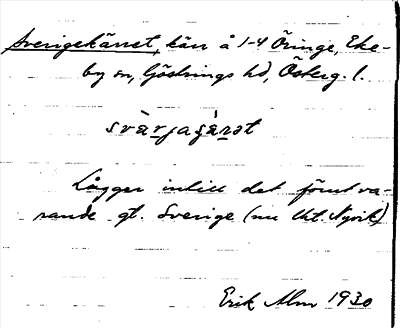 Sverigekärret, kärr å 1-4 Öringe, Eke-
by sn, Göstrings hd, Österg. l.
svärjaçärǝt
Ligger intill det förut va-
rande gt. Sverige (nu Ut. Nyvik)
Erik Alm 1930